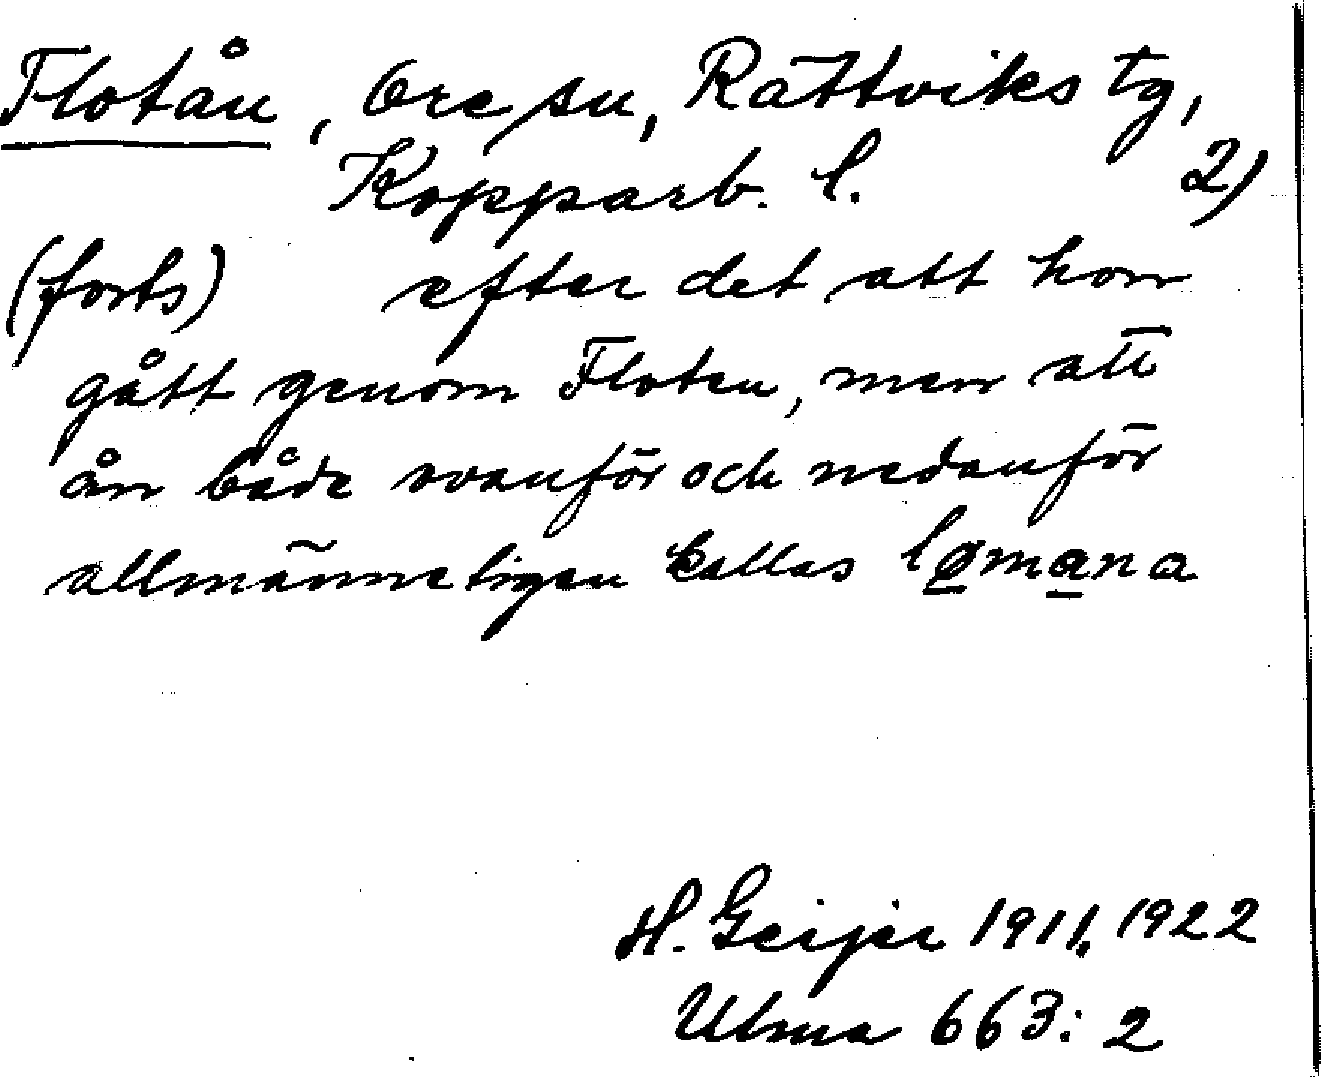 Flotån, Ore sn, Rättviks tg,
Kopparb. l. 2)
(forts) efter det att hon
gått genom Floten, men att
ån både ovanför och nedanför
allmänneligen kallas lømana
H. Geijer 1911, 1922
Ulma 663:2